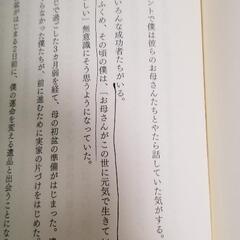 ントで僕は彼らのお母さんたちとやたら話していた気がする。
いろんな成功者たちがいる。
ふくめ、その頃の僕は、「お母さんがこの世に元気で生きてい
しい」無意識にそう思うようになっていた。
で過ごした3カ月弱を経て、母の初盆の準備がはじまった。
らなかった僕たちが、前に進むために実家の片づけをはじめた。
盆がはじまる2日前に、僕の運命を変える遺品と出会うことにな